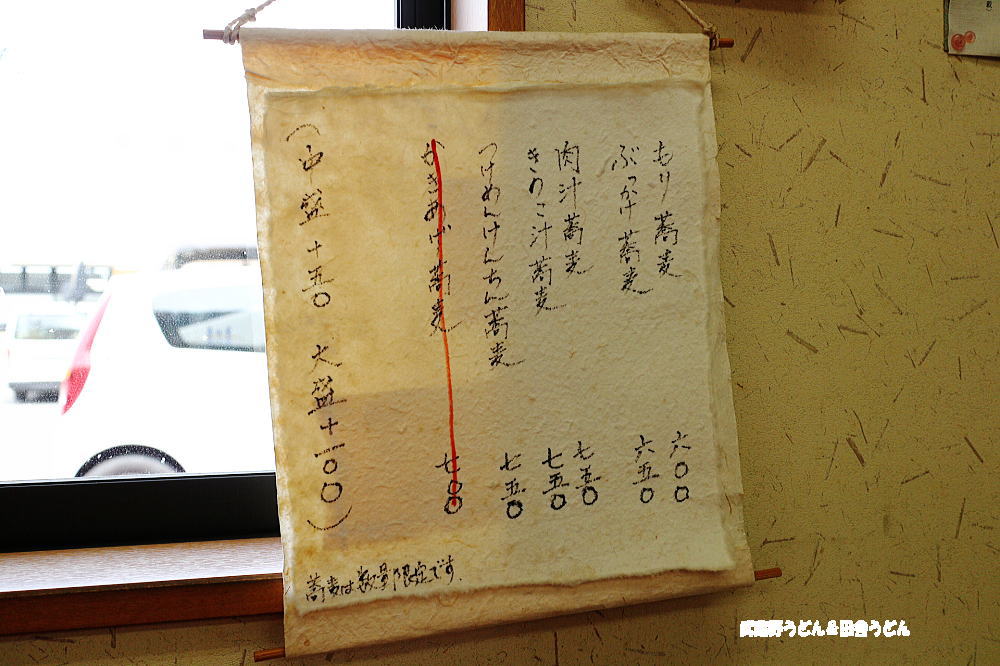 もり蕎麦 六〇〇
ぶっかけ蕎麦 六五〇
肉汁蕎麦 七五〇
きのこ汁蕎麦 七五〇
つけめんけんちん蕎麦 七五〇
かきあげ蕎麦 七〇〇
(中盛+五〇 大盛+一〇〇)
蕎麦は数量限定です.
武蔵野うどん&田舎うどん